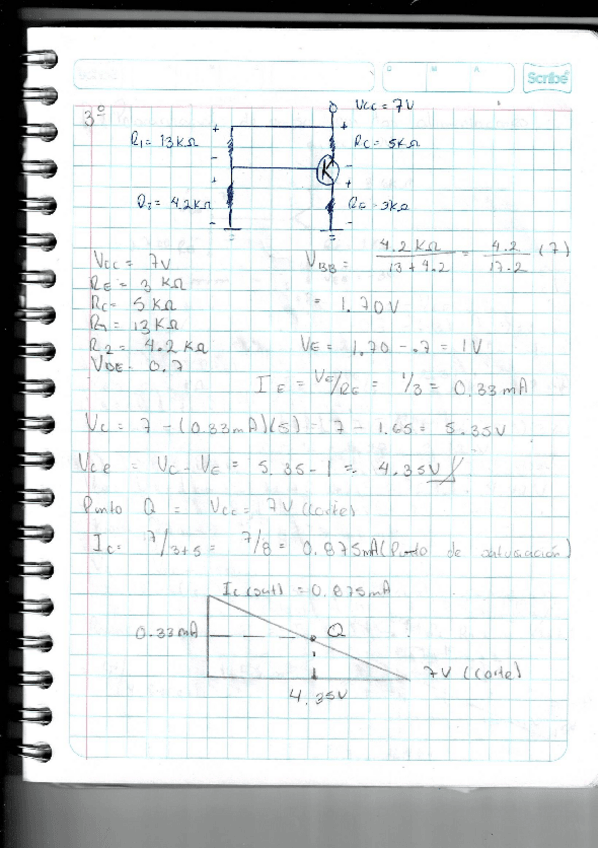 Scribe
3º
Vcc = 7V
R1 = 13KΩ
Rc = 5KΩ
R2 = 4.2KΩ
RE = 3KΩ
Vcc = 7V
RE = 3 KΩ
Rc = 5 KΩ
R1 = 13 KΩ
R2 = 4.2 KΩ
VBE = 0.7
VBB = 4.2 KΩ / 13 + 4.2 = 4.2 / 17.2 (7)
= 1.70V
VE = 1.70 - .7 = 1V
IE = VE/RE = 1/3 = 0.33mA
Vc = 7 - (0.33mA)(5) = 7 - 1.65 = 5.35V
Vce = Vc - VE = 5.35 - 1 = 4.35V
Punto Q = Vcc = 7V (corte)
Ic = 7/3+5 = 7/8 = 0.875mA (Punto de saturación)
Ic(sat) = 0.875mA
0.33mA
Q
7V (corte)
4.35V